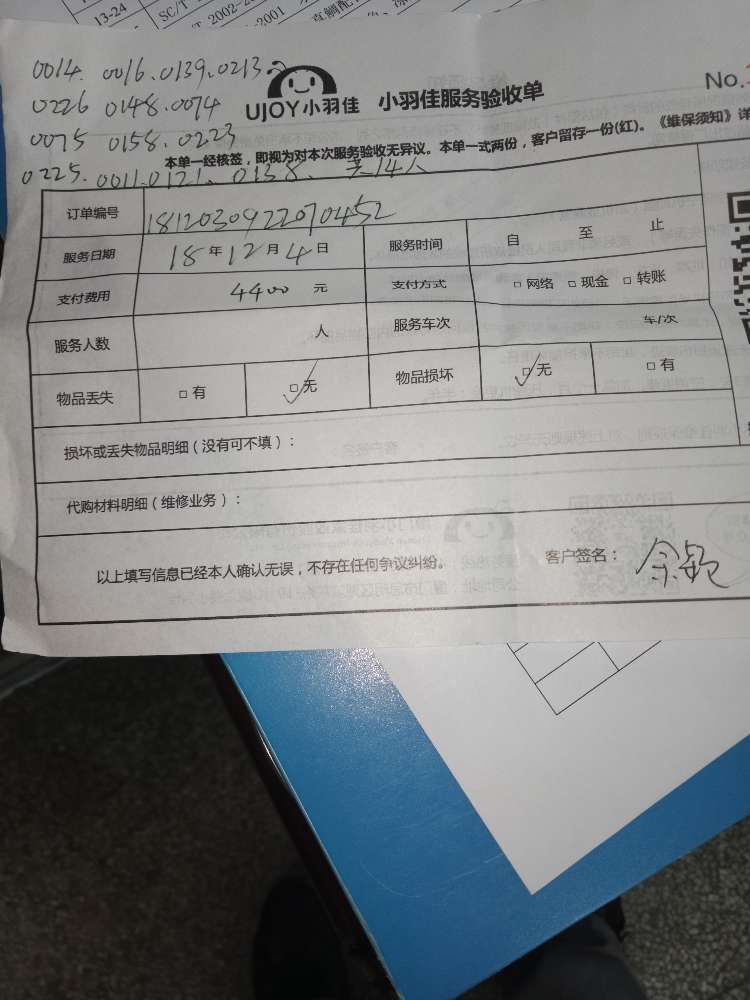 13-24
SC/T
2002-2
-2001
0014. 0016.0139.0213.
0226 0148.0074
0075 0158.0223
0225.0011.0121.0138、共14人
UJOY小羽佳 小羽佳服务验收单
No.
本单一经核签，即视为对本次服务验收无异议。本单一式两份，客户留存一份(红)。《维保须知》详
订单编号 1812030922070452
服务日期 18年12月4日 服务时间 自 至 止
支付费用 4400 元 支付方式 □网络 □现金 □转账
服务人数 人 服务车次 车/次
物品丢失 □有 □无 物品损坏 □无 □有
损坏或丢失物品明细（没有可不填）：
代购材料明细（维修业务）：
以上填写信息已经本人确认无误，不存在任何争议纠纷。 客户签名：余颖